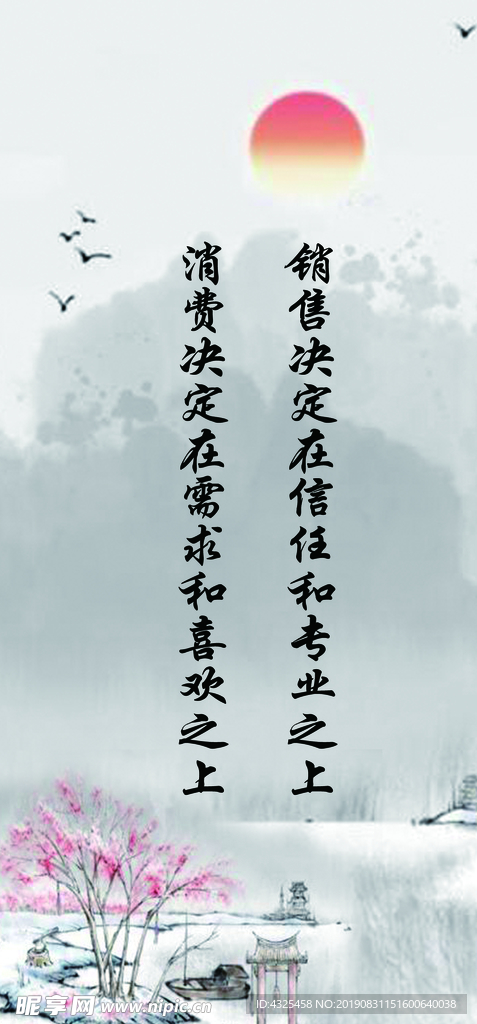 销售决定在信任和专业之上
消费决定在需求和喜欢之上
昵享网 www.nipic.cn
ID:4325458 NO:20190831151600640038